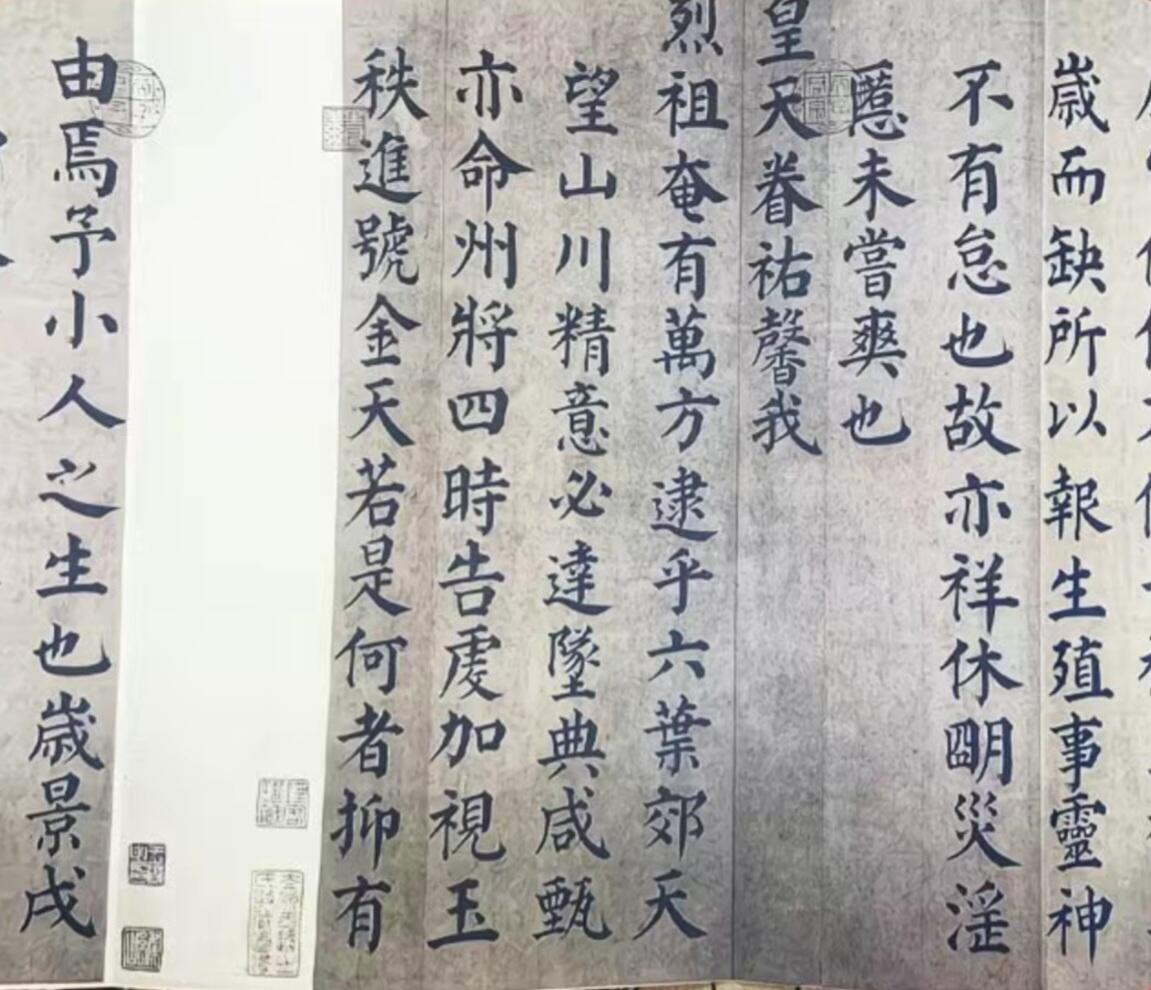 歲而缺所以報生殖事靈神
不有怠也故亦祥休明災淫
慝未嘗爽也
皇天眷祐馨我
烈祖奄有萬方逮乎六葉郊天
望山川精意必達墜典咸甄
亦命州將四時告虔加視玉
秩進號金天若是何者抑有
由焉予小人之生也歲景戌